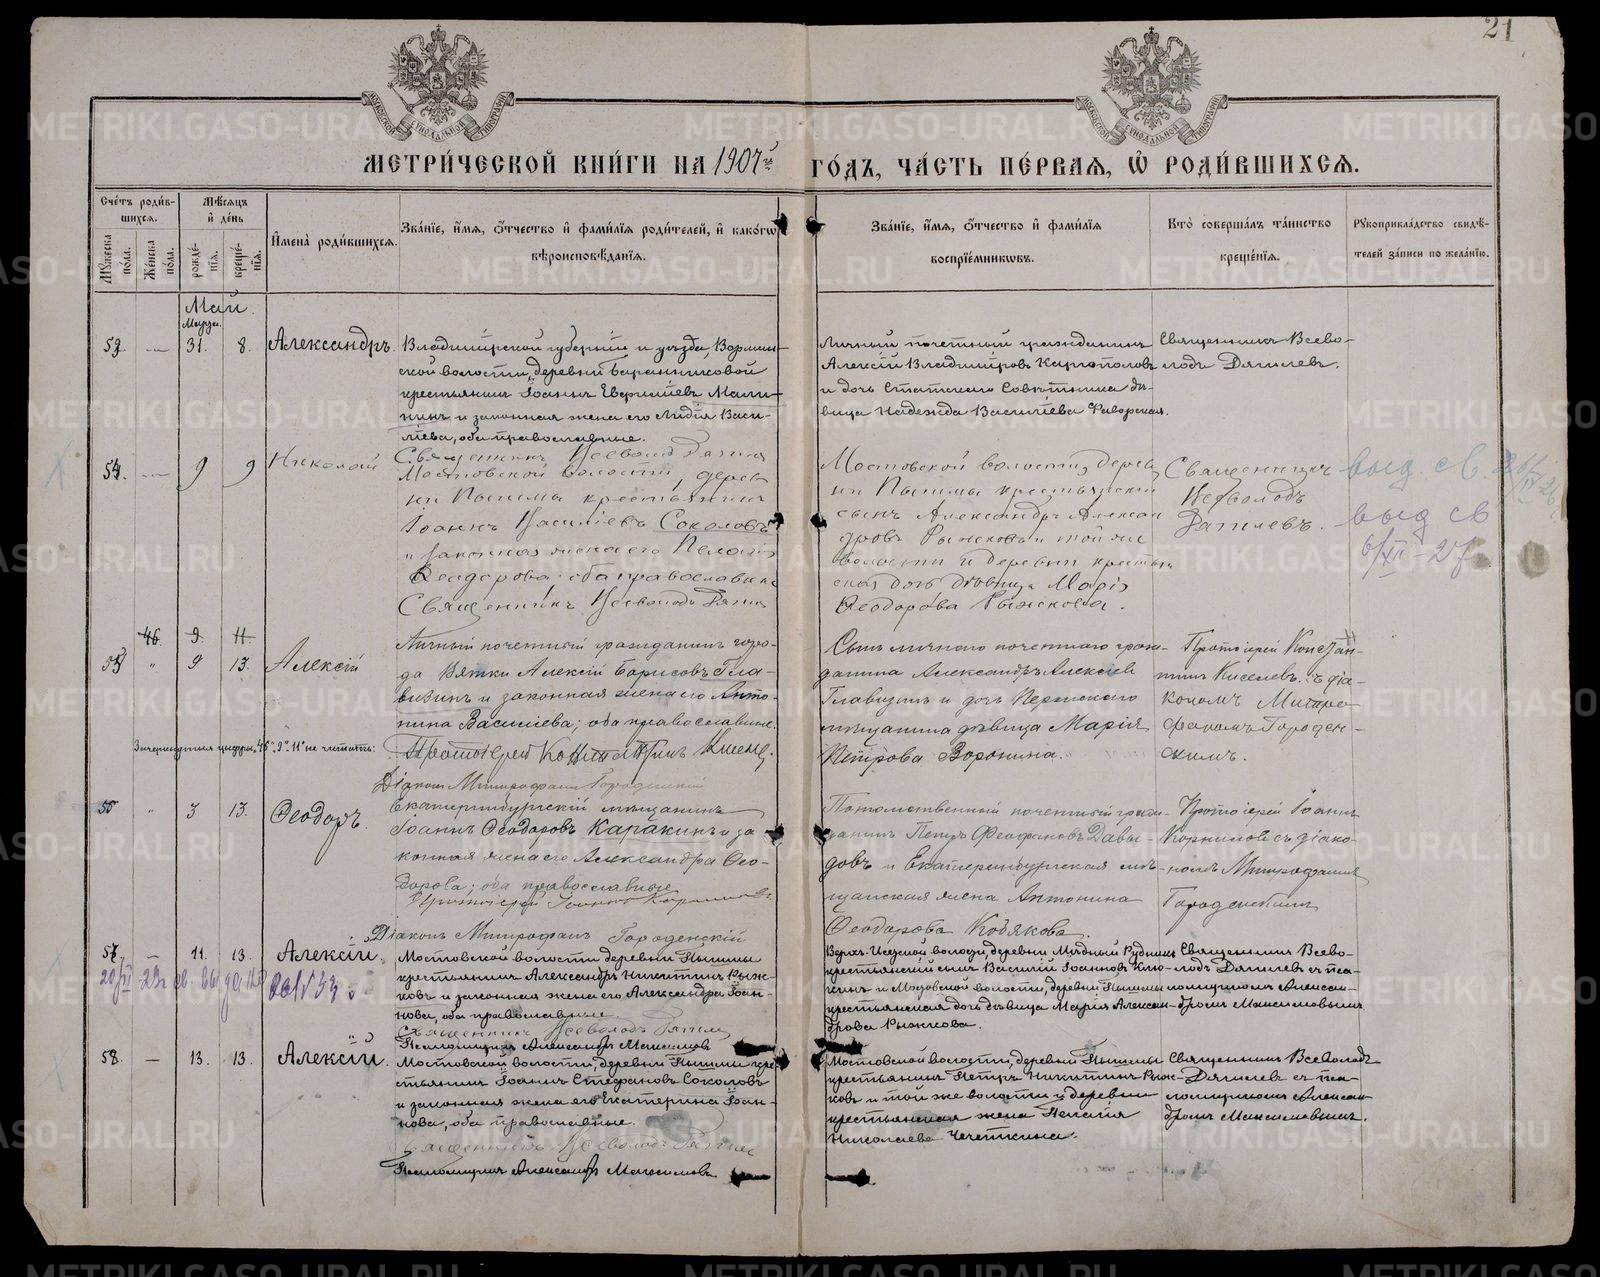 21
МЕТРИ́ЧЕСКОЙ КНИ́ГИ НА 1907й ГО́ДЪ, ЧА́СТЬ ПЕ́РВАЯ, Ѡ҆ РОДИ́ВШИХСЯ.
Сче́тъ роди́вшихся.
Мѣ́сяцъ и҆ де́нь
Мꙋ́жеска по́ла.
Же́нска по́ла.
рожде́нїѧ.
креще́нїѧ.
И҆мена̀ роди́вшихся.
Зва́нїе, и҆́мѧ, ѻ҆́тчество и҆ фами́лїѧ роди́телей, и҆ како́гѡ
вѣроисповѣ́данїѧ.
Зва́нїе, и҆́мѧ, ѻ҆́тчество и҆ фами́лїѧ
воспрїе́мниковъ.
Кто̀ соверша́лъ та́инство
креще́нїѧ.
Рꙋкоприкла́дство свидѣ́-
телей за́писи по жела́нїю.
Май.
Марта.
53. — 31. 8. Александръ.
Владимірской губерніи и уѣзда, Вормин-
ской волости, деревни Баранниковой
крестьянинъ Іоаннъ Евфиміевъ Мали-
нинъ и законная жена его Лидія Васи-
ліева, оба православные.
Священникъ Всеволодъ Дягилевъ
Личный почетный гражданинъ
Алексій Владиміровъ Каргополовъ
и дочь Статскаго Совѣтника дѣ-
вица Надежда Васильева
Священникъ Всево-
лодъ Дягилевъ.
54. — 9 9 Николай
Мостовской волости, дерев
ни Пышмы крестьянинъ
Іоаннъ Василіевъ Соколовъ
и законная жена его Пелагія
Ѳеодорова; оба православные
Священникъ Всеволодъ Дягилевъ
Мостовской волости, дерев
ни Пышмы крестьянскій
сынъ Александръ Алексан
дровъ Рыжковъ и той же
волости и деревни крестьян
ская дочь дѣвица Марія
Ѳеодорова Рыжкова.
Священникъ
Всеволодъ
Дягилевъ.
выд. св.
выд св
6/XII-27
46. 9. 11.
55 " 9 13. Алексій
Личный почетный гражданинъ горо-
да Вятки Алексій Борисовъ Гла-
визинъ и законная жена его Анто-
нина Василіева; оба православные.
Зачеркнутыя цыфры „46" „9" „11" не читать:
Протоіерей Константинъ Киселевъ.
Діаконъ Митрофанъ Городенскій
Сынъ личнаго почетнаго граж-
данина Александръ Алексіевъ
Главизинъ и дочь Пермскаго
мѣщанина дѣвица Марія
Петрова Воронина.
Протоіерей Констан-
тинъ Киселевъ съ діа-
кономъ Митро-
фаномъ Городен-
скимъ.
56 " 3 13. Ѳеодоръ.
Екатеринбургскій мѣщанинъ
Іоаннъ Ѳеодоровъ Каракинъ и за
конная жена его Александра Ѳео-
дорова; оба православные
Протоіерей Іоаннъ Корниловъ
Діаконъ Митрофанъ Городенскій
Потомственный почетный граж-
данинъ Петръ Ѳеофановъ Давы-
довъ и Екатеринбургская мѣ-
щанская жена Антонина
Ѳеодорова Кобякова.
Протоіерей Іоаннъ
Корниловъ съ діако-
номъ Митрофаномъ
Городенскимъ
57. — 11. 13. Алексій.
Мостовской волости деревни Пышмы
крестьянинъ Александръ Никитинъ Рыж-
ковъ и законная жена его Александра Іоан-
нова, оба православные.
Священникъ Всеволодъ Дягилевъ
Псаломщикъ Александръ Максимовъ
Верх-Исетской волости, деревни Мѣдный Рудникъ
крестьянскій сынъ Василій Іоанновъ
и Мостовской волости, деревни Пышмы
крестьянская дочь дѣвица Марія Алексан-
дрова Рыжкова.
Священникъ Всево-
лодъ Дягилевъ съ пса-
ломщикомъ Алексан-
дромъ Максимовымъ
58. — 13. 13. Алексій.
Мостовской волости, деревни Пышмы кре-
стьянинъ Іоаннъ Стефановъ Соколовъ
и законная жена его Екатерина Іоан-
нова, оба православные.
Священникъ Всеволодъ Дягилевъ
Псаломщикъ Александръ Максимовъ
Мостовской волости, деревни Пышмы
крестьянинъ Петръ Никитинъ Рыж-
ковъ и той же волости и деревни
крестьянская жена Пелагія
Николаева Чечеткина.
Священникъ Всеволодъ
Дягилевъ съ пса-
ломщикомъ Алексан-
дромъ Максимовымъ.
METRIKI.GASO-URAL.RU